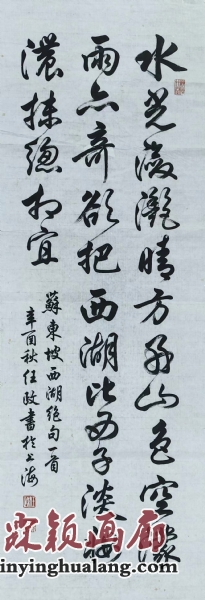 水光潋滟晴方好山色空濛
雨亦奇欲把西湖比西子淡妝
濃抹總相宜
蘇東坡西湖絕句一首
辛酉秋任政書於上海
霖颖画廊
inyinghualang.com